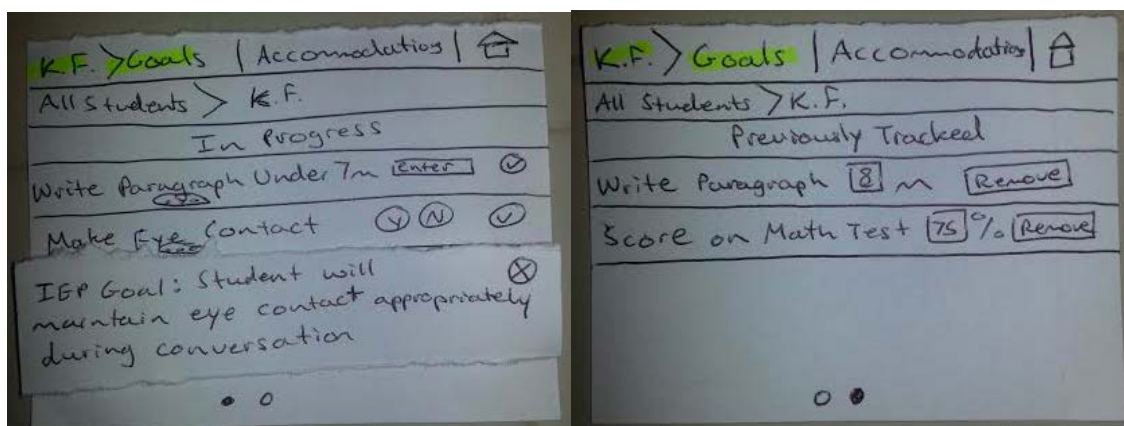 K.F. > Goals | Accommodations | 
All Students > K.F.
In Progress
Write Paragraph Under 7m Enter
Make Eye Contact Y N
IEP Goal: Student will
maintain eye contact appropriately
during conversation
K.F. > Goals | Accommodations |
All Students > K.F.
Previously Tracked
Write Paragraph 8 m Remove
Score on Math Test 75 % Remove